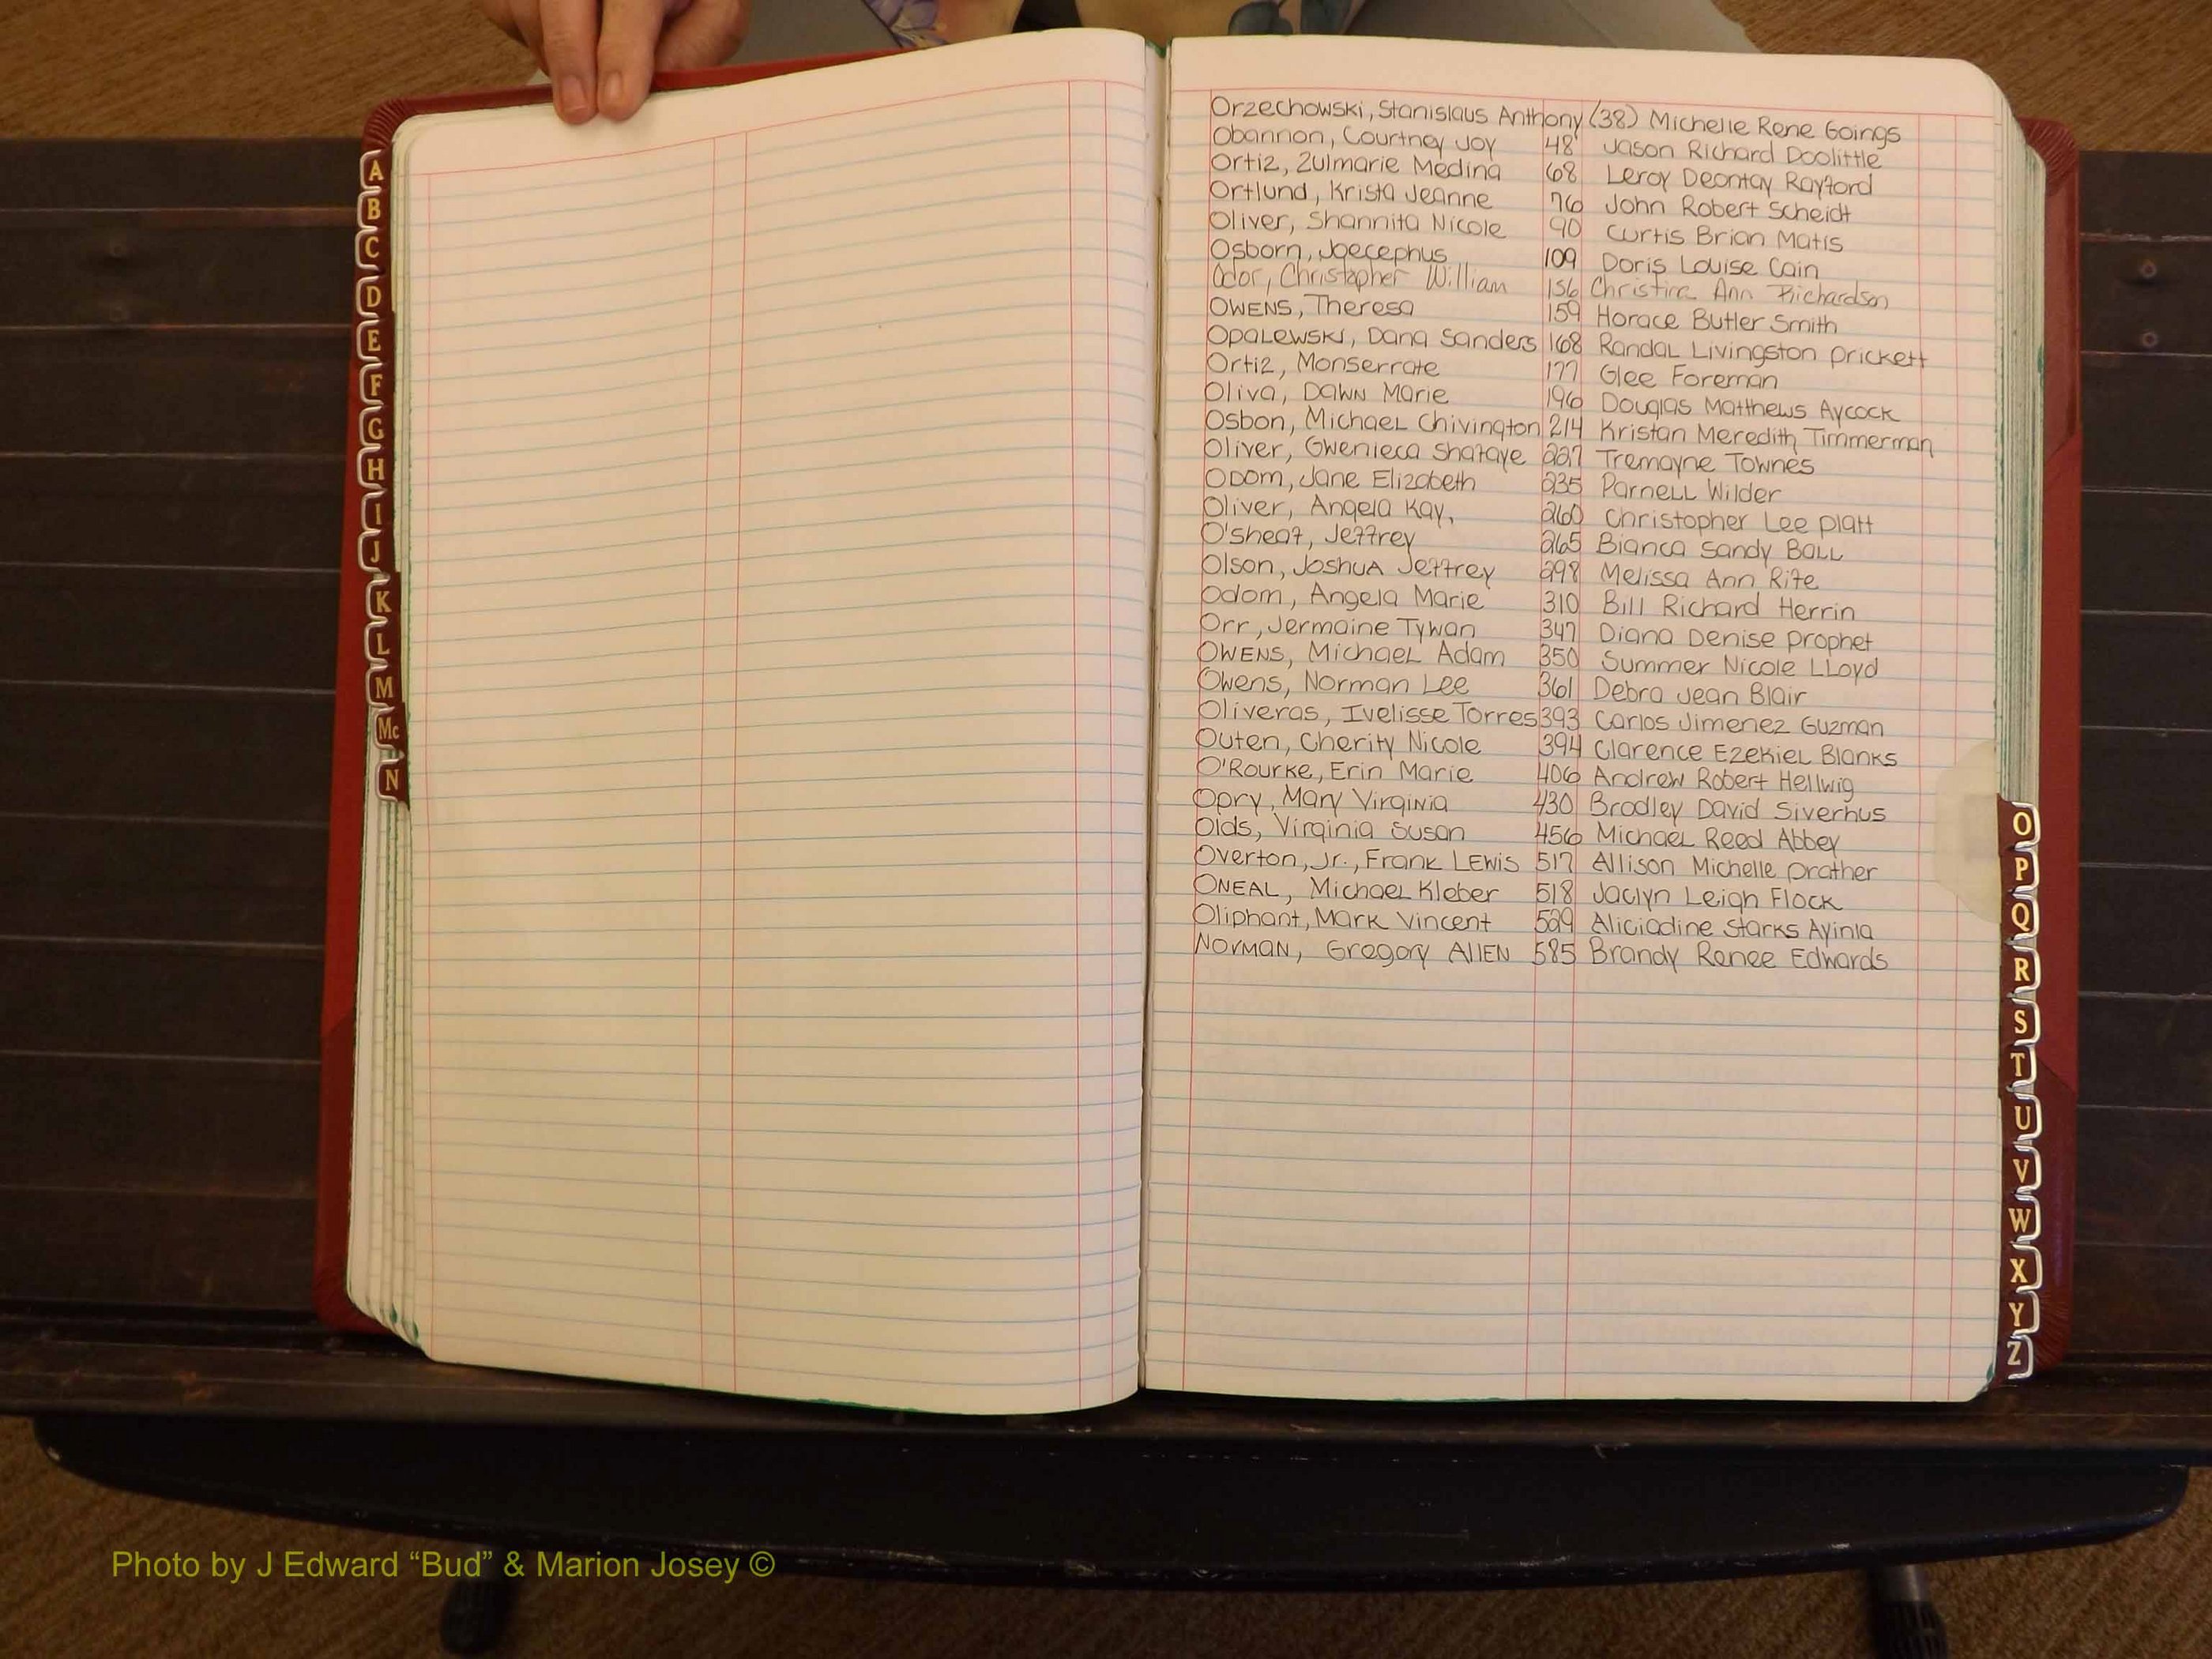 Orzechowski, Stanislaus Anthony (38) Michelle Rene Goings
Obannon, Courtney Joy 48 Jason Richard Doolittle
Ortiz, Zulmarie Medina 68 Leroy Deontay Rayford
Ortlund, Krista Jeanne 76 John Robert Scheidt
Oliver, Shannita Nicole 90 Curtis Brian Matis
Osborn, Joecephus 109 Doris Louise Cain
Odor, Christopher William 156 Christina Ann Richardson
OWENS, Theresa 159 Horace Butler Smith
OpaLEWSKI, Dana Sanders 168 Randal Livingston Prickett
Ortiz, Monserrate 177 Glee Foreman
Oliva, DAWN Marie 196 Douglas Matthews Aycock
Osbon, Michael Chivington 214 Kristan Meredith Timmerman
Oliver, Gwenieca Shafaye 227 Tremayne Townes
ODOM, Jane Elizabeth 235 Parnell Wilder
Oliver, Angela Kay, 260 Christopher Lee Platt
O'sheaf, Jeffrey 265 Bianca Sandy Ball
Olson, Joshua Jeffrey 298 Melissa Ann Rife
Odom, Angela Marie 310 Bill Richard Herrin
Orr, Jermaine Tywan 347 Diana Denise Prophet
OWENS, Michael Adam 350 Summer Nicole Lloyd
Owens, Norman Lee 361 Debra Jean Blair
Oliveras, Ivelisse Torres 393 Carlos Jimenez Guzman
Outen, Cherity Nicole 394 Clarence Ezekiel Blanks
O'Rourke, Erin Marie 406 Andrew Robert Hellwig
Opry, Mary Virginia 430 Bradley David Siverhus
Olds, Virginia Susan 456 Michael Reed Abbey
Overton, Jr., Frank Lewis 517 Allison Michelle Prather
ONEAL, Michael Kleber 518 Jaclyn Leigh Flock
Oliphant, Mark Vincent 529 Aliciadine Starks Ayinla
Norman, Gregory Allen 585 Brandy Renee Edwards
A
B
C
D
E
F
G
H
I
J
K
L
M
Mc
N
O
P
Q
R
S
T
U
V
W
X
Y
Z
Photo by J Edward “Bud” & Marion Josey ©